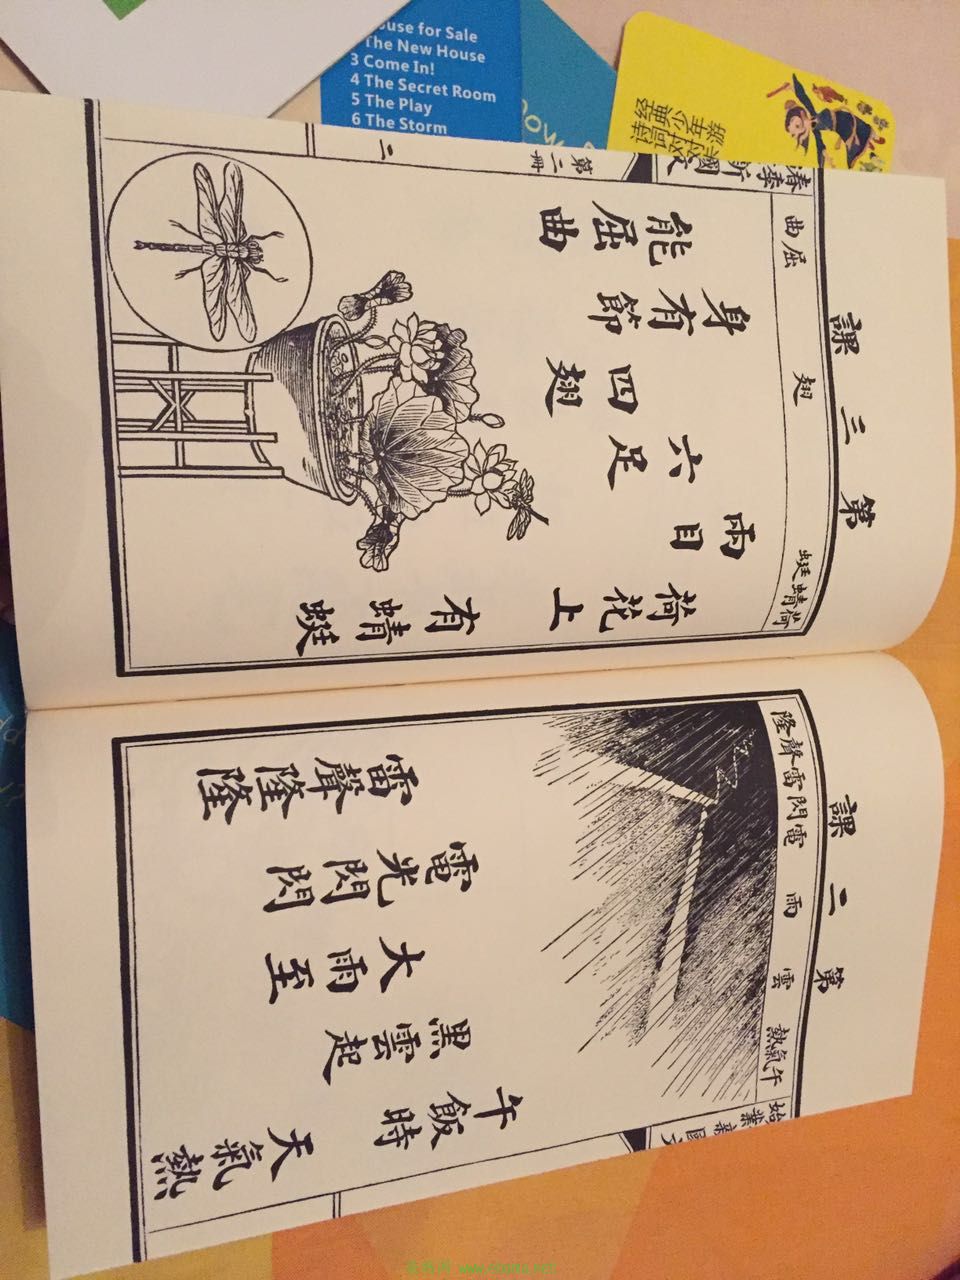 第二課
午氣熱 雲 雨 電閃雷聲隆
天氣熱
午飯時
黑雲起
大雨至
電光閃閃
雷聲隆隆
第三課
荷蜻蜓 翅 屈曲
荷花上
有蜻蜓
兩目
六足
四翅
身有節
能屈曲
春季
新國文
第二冊
二
始業
ouse for Sale
The New House
3 Come In!
4 The Secret Room
5 The Play
6 The Storm